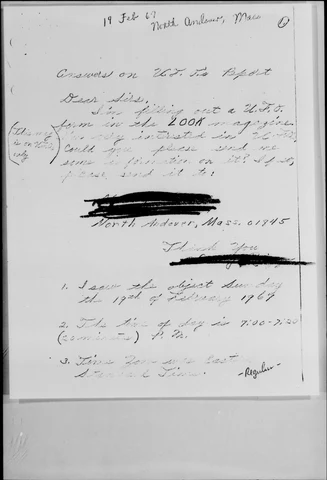 19 Feb 67
North Andover, Mass
1
Answers on U.F.O. Report
Dear Sirs,
I'm filling out a U.F.O.
form in the LOOK magazine.
I'm very intrested in U.F.O.s
Could you please send me
some information on it? If so,
please send it to:
North Andover, Mass. 01845
Thank You
1. I saw the object Sunday
the 19th of February 1967
2. The time of day is 7:00-7:20
P.M.
3. Time Zone was Eastern
Standard Time.
-Regular-